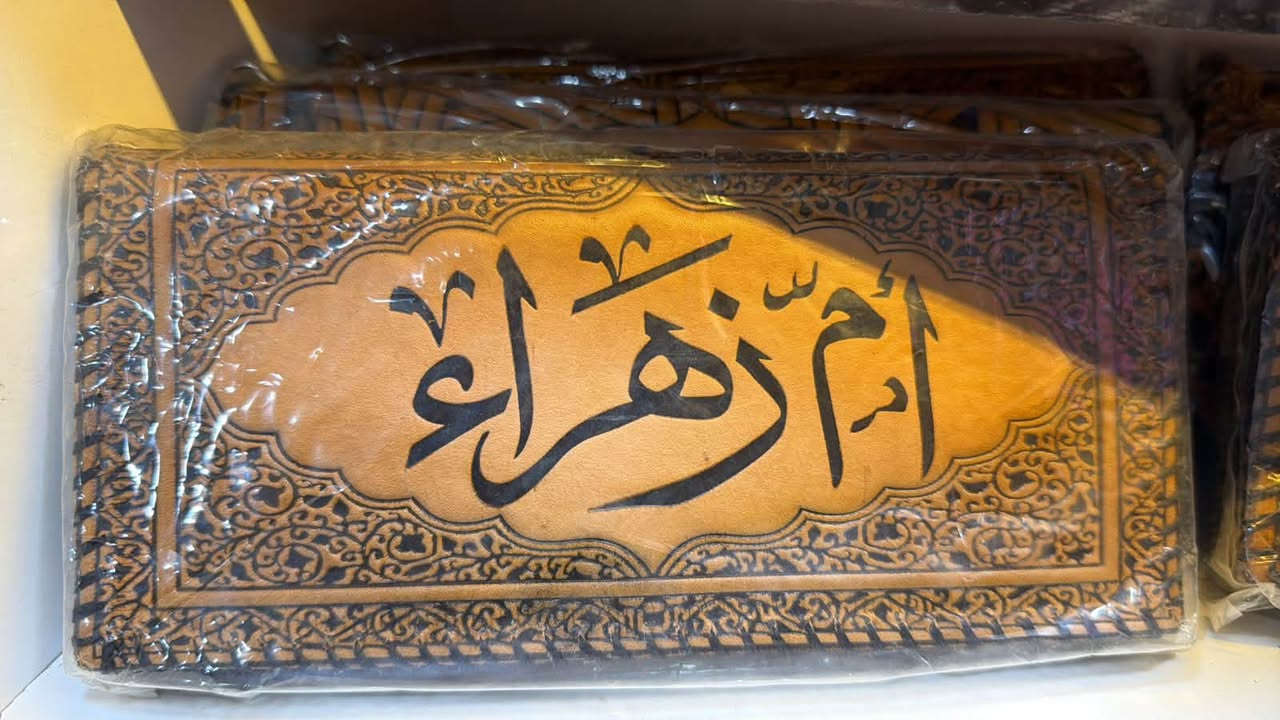 أمّ زهراء